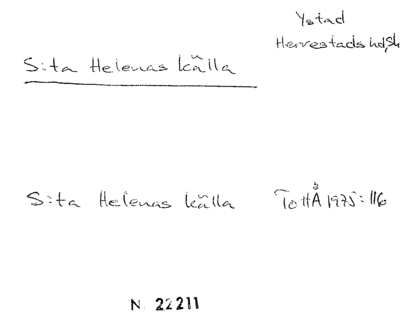 Ystad
Herrestads hd, Sk
S:ta Helenas källa
S:ta Helenas källa ToHÅ 1975:116
N. 22211